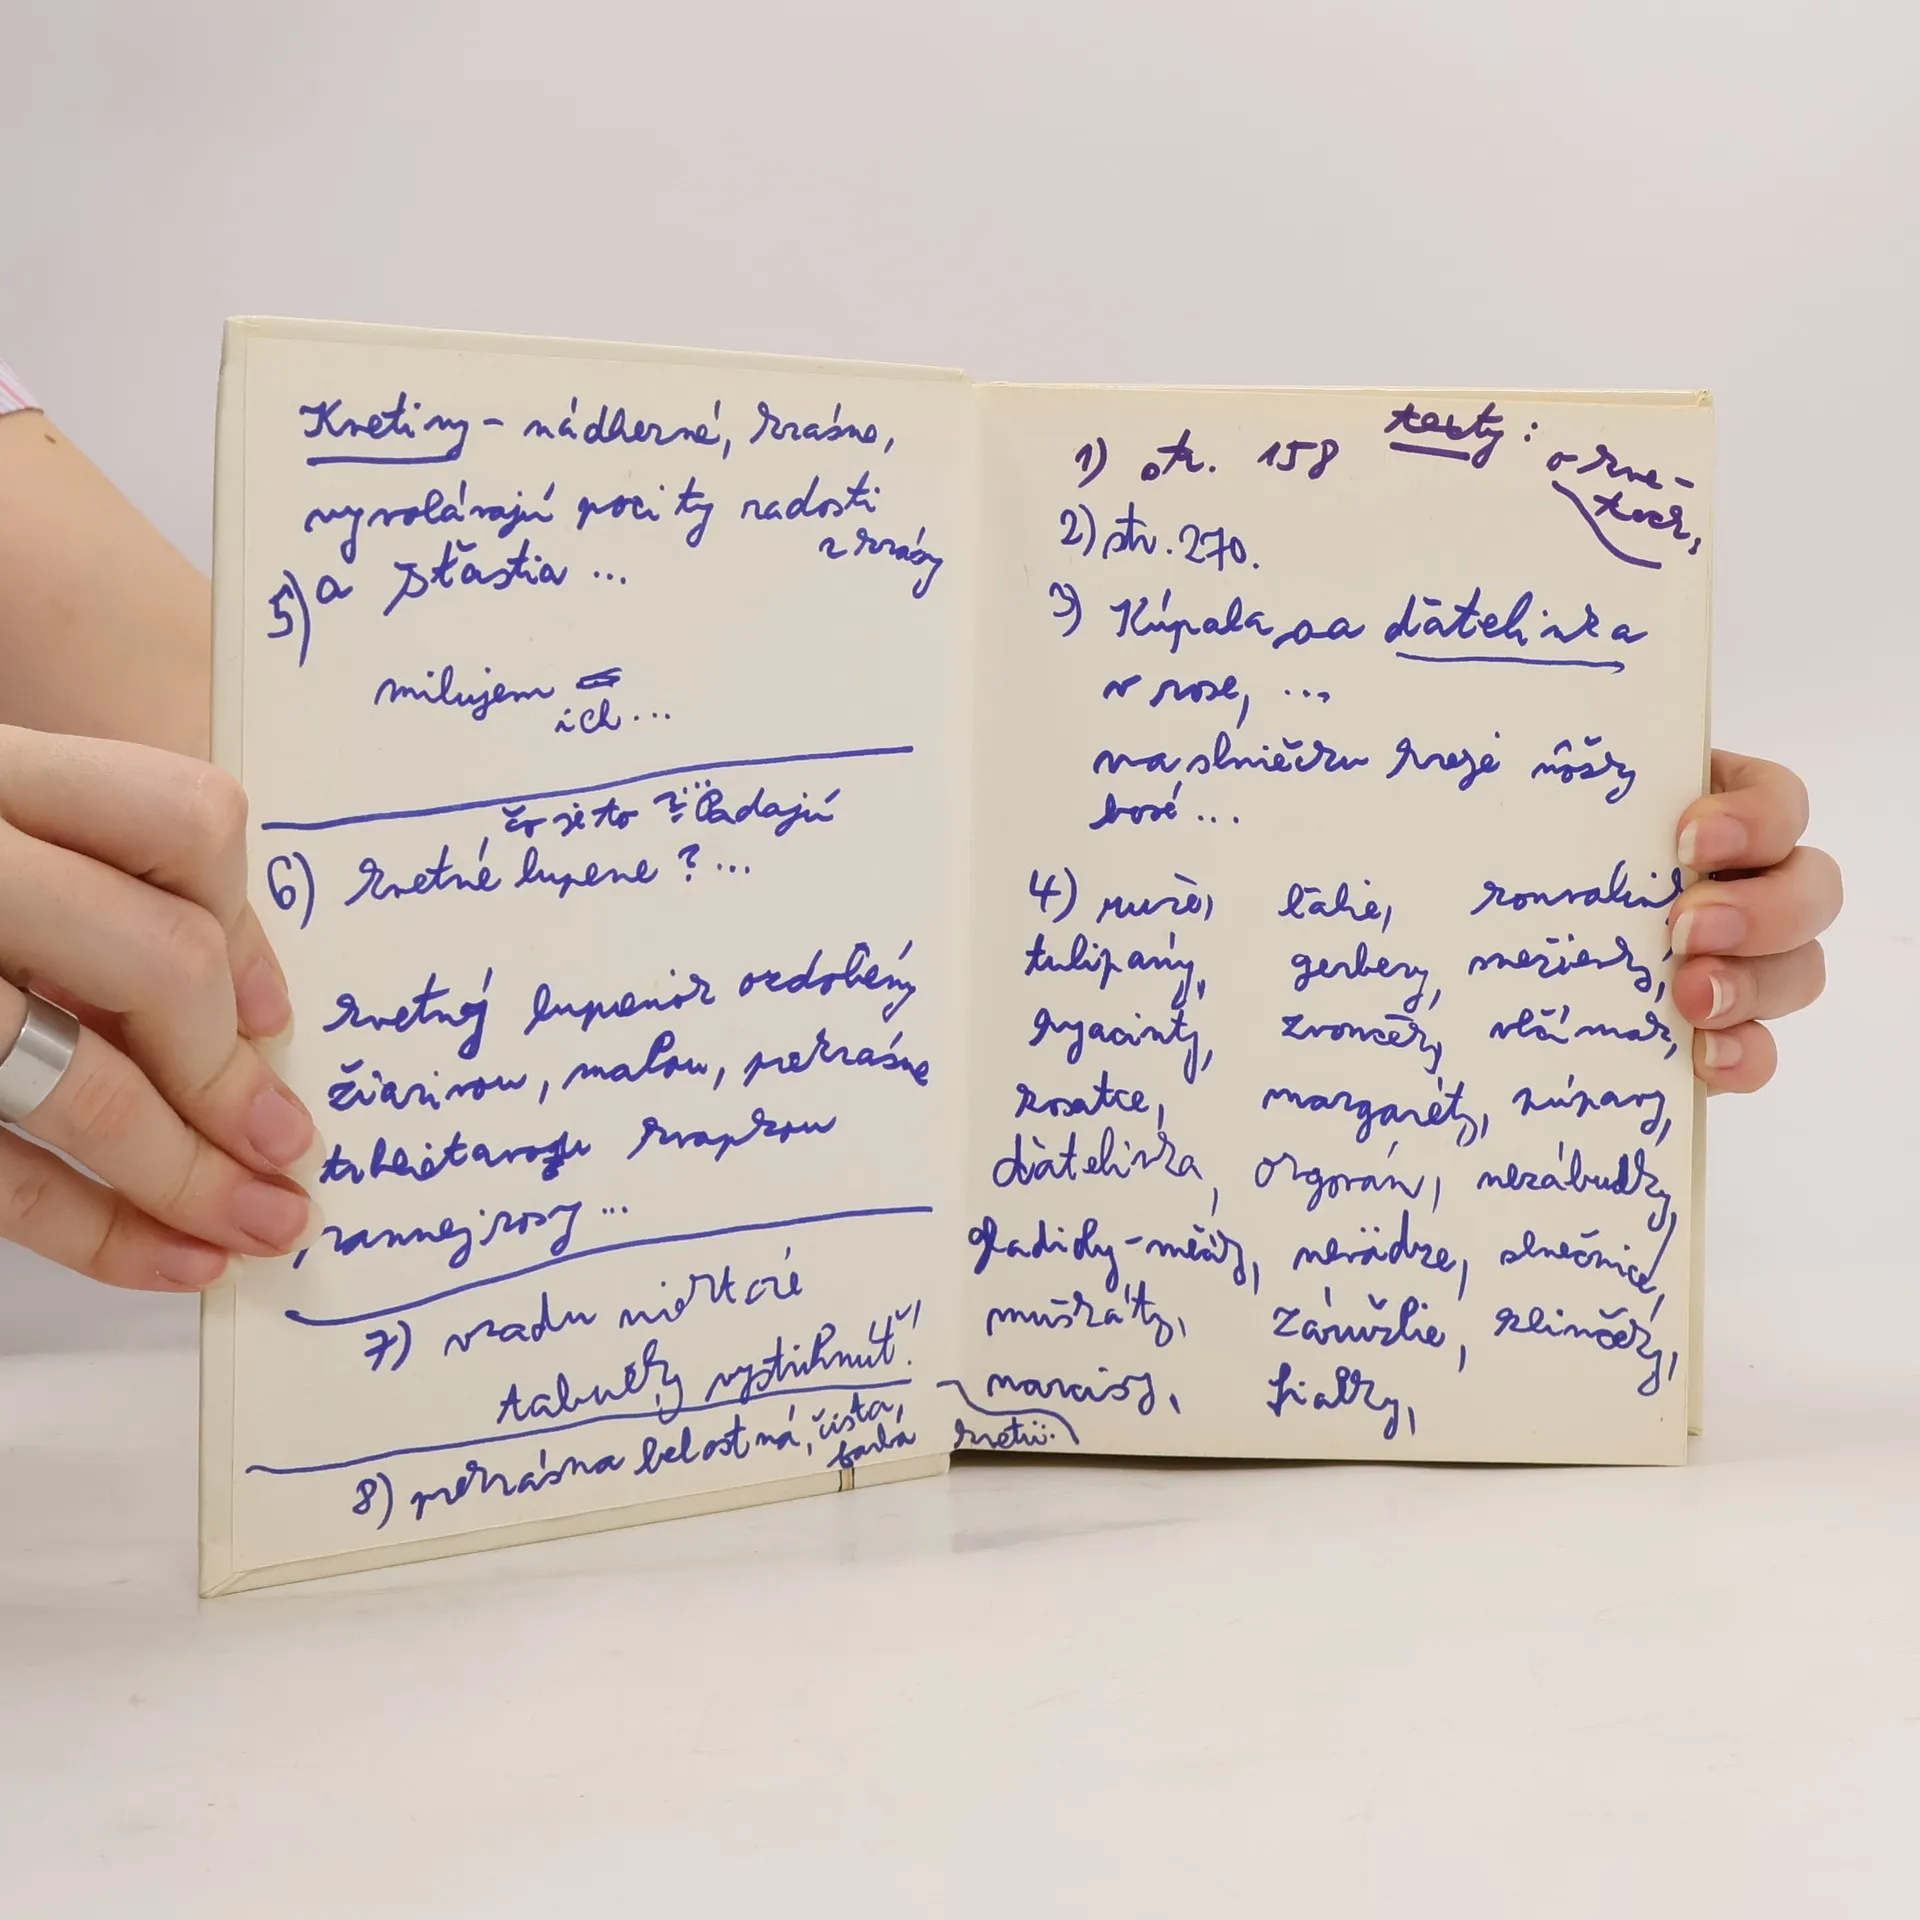 Kvetiny - nádherné, krásne,
vyvolávajú pocity radosti
z krásy
5) a šťastia ...
milujem
ich ...
čo je to ?... Padajú
6) kvetné lupene ? ...
kvetný lupienok ozdobený
žiarivou, malou, prekrásne
trblietavou kvapkou
rannej rosy ...
7) vzadu niektoré
tabuľky vystrihnúť!
8) prekrásna belostná, čistá,
farba
kvetu.
texty :
1) str. 158 o kve-
toch,
2) str. 270.
3) Kúpala sa ďatelinka
v rose, ...
na slniečku hreje nôžky
bosé ...
4) ruže, ľalie, konvalink
tulipány, gerbery, snežienky,
hyacinty, zvončeky, vlčí mak,
kosatce, margaréty, púpavy,
ďatelinka, orgován, nezábudky,
gladioly - mečíky, nevädze, slnečnice,
muškáty, záružlie, klinčeky,
narcisy, fialky,